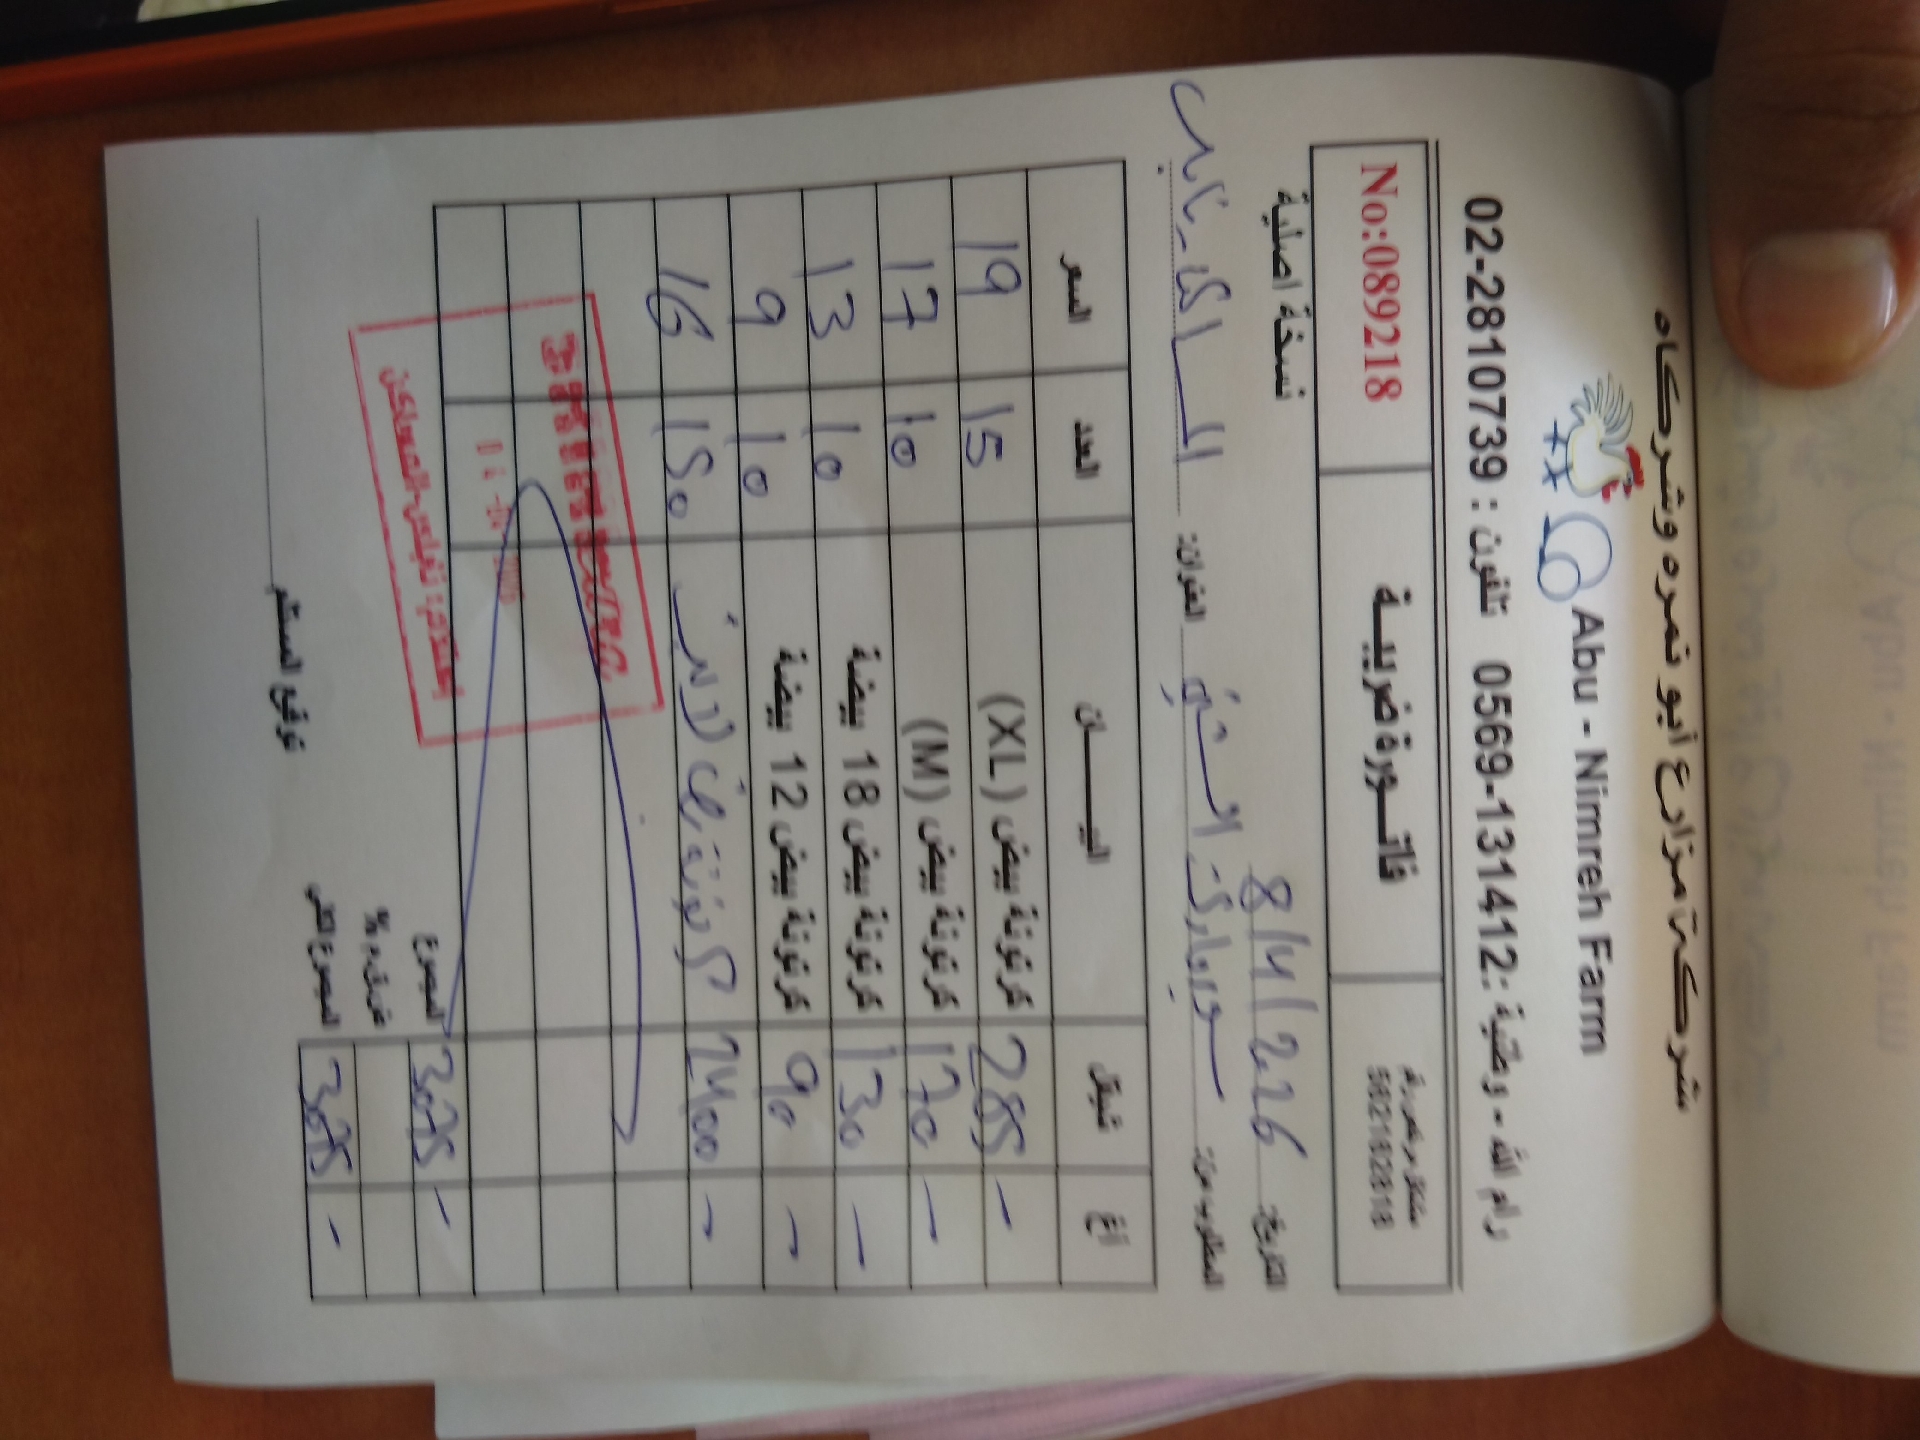 شركة مزارع أبو نمره وشركاه
Abu - Nimreh Farm
رام الله - وطنية : 0569-131412 تلفون : 02-2810739
مشتغل مرخص رقم
562182818
فاتـورة ضريبـة
No:089218
نسخة اصلية
التاريخ: 8/4/2026
المطلوب من: سوبرماركت
العنوان:
أغ شيقل البيـــــان العدد السعر
- 285 كرتونة بيض (XL) 15 19
- 170 كرتونة بيض (M) 10 17
- 130 كرتونة بيض 18 بيضة 10 13
- 90 كرتونة بيض 12 بيضة 10 9
- 2400 كرتونة بيض 150 16
المجموع 3075 -
ض.ق.م %
المجموع الكلي 3075 -
توقيع المستلم